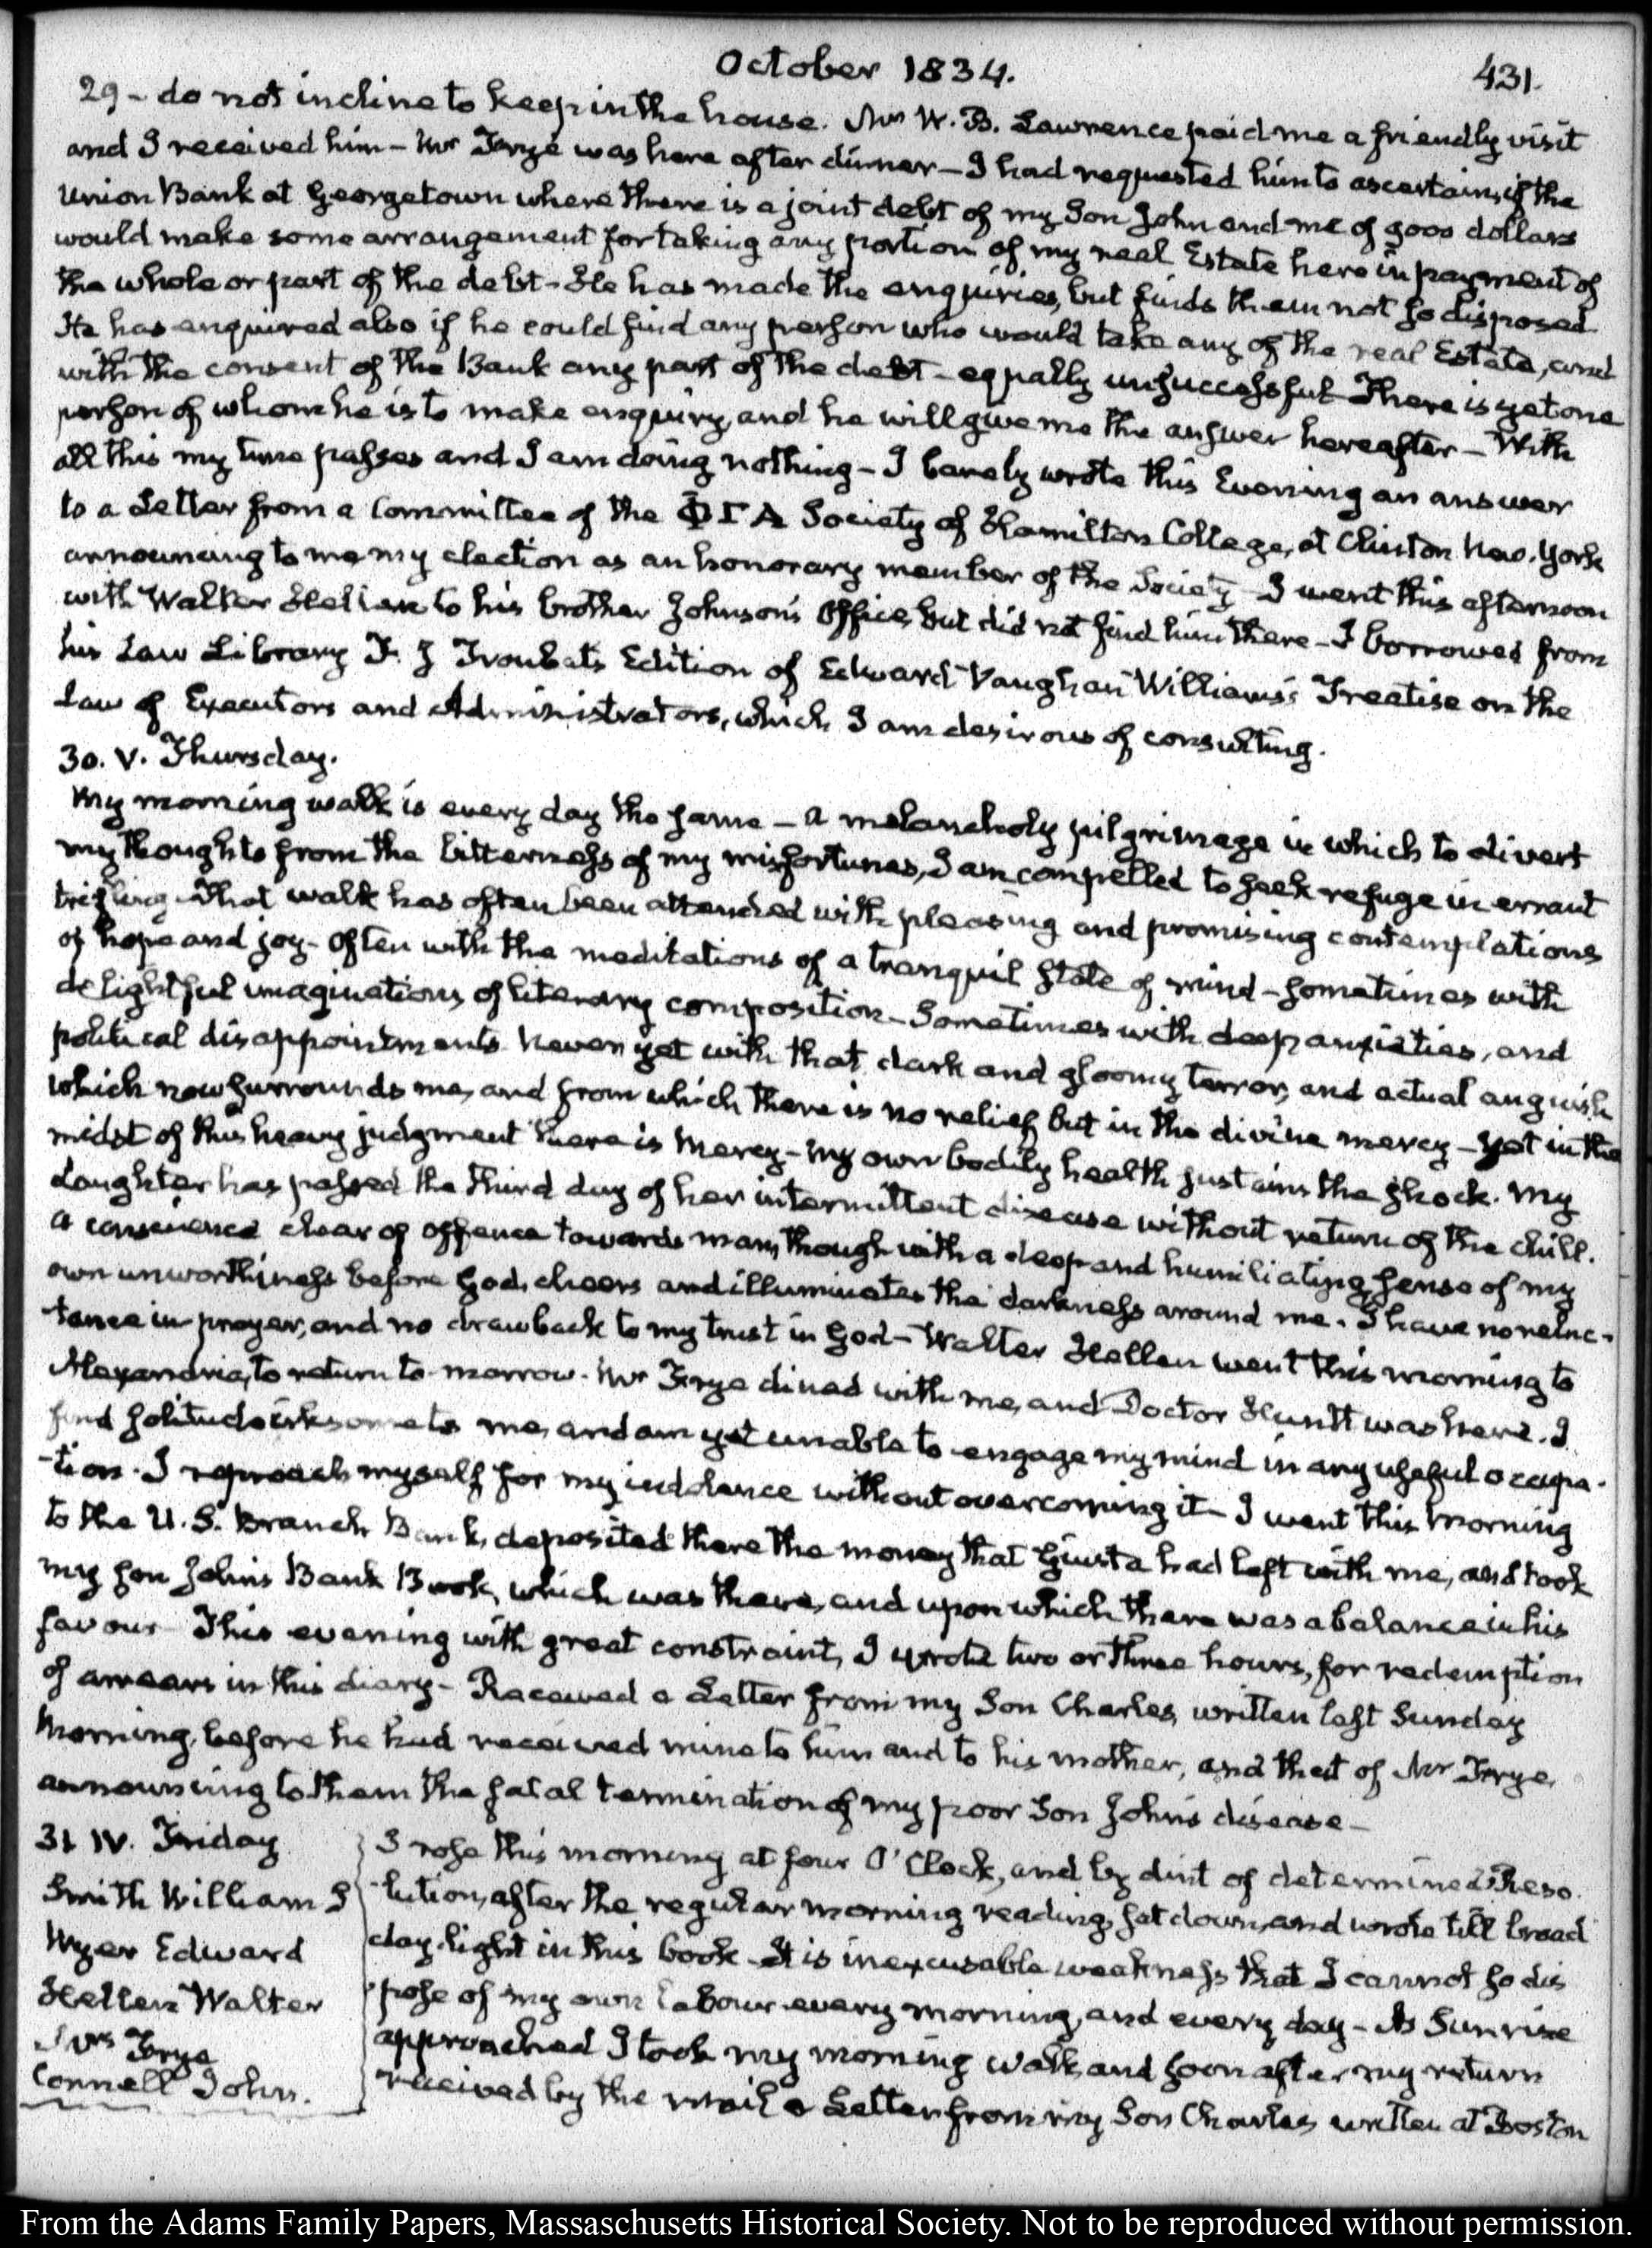 October 1834.
431.
29 - do not incline to keep in the house. Mr W. B. Lawrence paid me a friendly visit
and I received him - Mr Frye was here after dinner - I had requested him to ascertain, if the
Union Bank at Georgetown where there is a joint debt of my Son John and me of 9000 dollars
would make some arrangement for taking any portion of my real Estate here in payment of
the whole or part of the debt - He has made the enquiries, but finds them not so disposed
He has enquired also if he could find any person who would take any of the real Estate, and
with the consent of the Bank any part of the debt - equally unsuccessful There is yet one
person of whom he is to make enquiry, and he will give me the answer hereafter - With
all this my time passes and I am doing nothing - I barely wrote this Evening an answer
to a Letter from a Committee of the Φ Γ Α Society of Hamilton College, at Clinton New-York
announcing to me my election as an honorary member of the Society - I went this afternoon
with Walter Hellen to his brother Johnson's Office, but did not find him there - I borrowed from
his Law Library F. J Troubat's Edition of Edward Vaughan Williams's Treatise on the
Law of Executors and Administrators, which I am desirous of consulting.
30. V. Thursday.
My morning walk is every day the same - a melancholy pilgrimage in which to divert
my thoughts from the bitterness of my misfortunes, I am compelled to seek refuge in errant
trifling - That walk has often been attended with pleasing and promising contemplations
of hope and joy - often with the meditations of a tranquil state of mind - sometimes with
delightful imaginations of literary composition - Sometimes with deep anxieties, and
political disappointments never yet with that dark and gloomy terror, and actual anguish
which now surrounds me, and from which there is no relief but in the divine mercy - Yet in the
midst of this heavy judgment there is Mercy - my own bodily health sustains the shock. My
daughter has passed the third day of her intermittent disease without return of the chill.
A conscience clear of offence towards man, though with a deep and humiliating sense of my
own unworthiness before God, cheers and illuminates the darkness around me. I have no reluc-
-tance in prayer, and no drawback to my trust in God - Walter Hellen went this morning to
Alexandria, to return to-morrow. Mr Frye dined with me, and Doctor Huntt was here. I
find solitude irksome to me, and am yet unable to engage my mind in any useful occupa-
-tion. I reproach myself for my indolence without overcoming it - I went this morning
to the U. S. Branch Bank, deposited there the money that Giusta had left with me, and took
my son John's Bank Book, which was there, and upon which there was a balance in his
favour - This evening with great constraint, I wrote two or three hours, for redemption
of arrears in this diary - Received a Letter from my Son Charles, written last Sunday
Morning, before he had received mine to him and to his mother, and that of Mr Frye,
announcing to them the fatal termination of my poor Son John's disease -
31 IV. Friday
Smith William S
Wyer Edward
Hellen Walter
Mrs Frye
Connell John.
I rose this morning at four O'Clock, and by dint of determined Reso-
-lution, after the regular morning reading, sat down, and wrote till broad
day-light in this book - It is inexcusable weakness that I cannot so dis
-pose of my own labour every morning, and every day - As Sunrise
approached I took my morning walk, and soon after my return
received by the mail a Letter from my Son Charles written at Boston
From the Adams Family Papers, Massachusetts Historical Society. Not to be reproduced without permission.